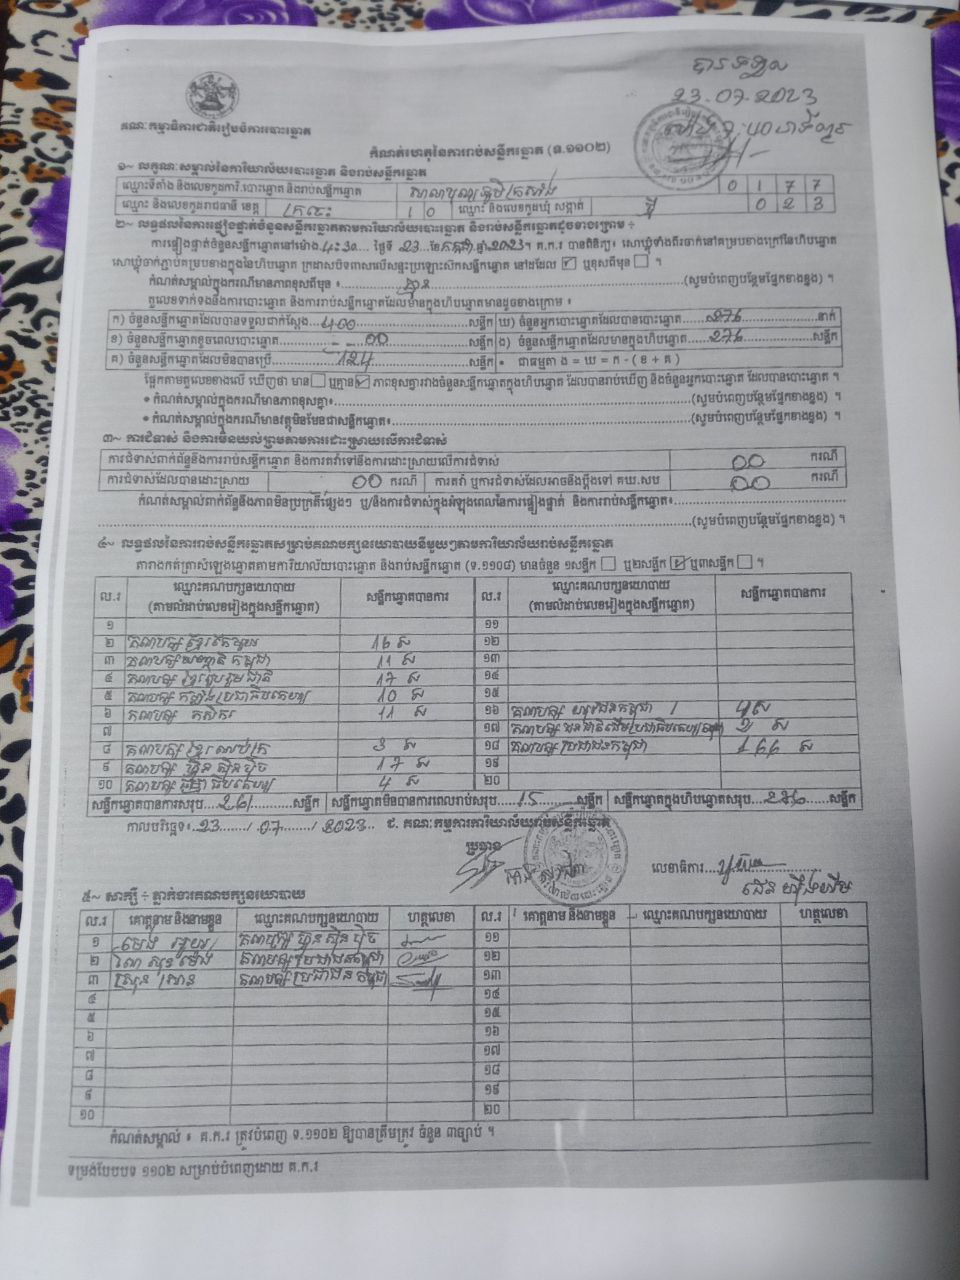 បានទទួល
23.07.2023
គណៈកម្មាធិការជាតិរៀបចំការបោះឆ្នោត
កំណត់ហេតុនៃការរាប់សន្លឹកឆ្នោត (ទ.១១០២)
១~ លក្ខណៈសម្គាល់នៃការិយាល័យបោះឆ្នោត និងរាប់សន្លឹកឆ្នោត
ឈ្មោះទីតាំង និងលេខកូដការិ.បោះឆ្នោត និងរាប់សន្លឹកឆ្នោត 0 1 7 7
ឈ្មោះ និងលេខកូដរាជធានី ខេត្ត ក្រចេះ 1 0 ឈ្មោះ និងលេខកូដឃុំ សង្កាត់ 0 2 3
២~ លទ្ធផលនៃការផ្ទៀងផ្ទាត់ចំនួនសន្លឹកឆ្នោតតាមការិយាល័យបោះឆ្នោត និងរាប់សន្លឹកឆ្នោតដូចខាងក្រោម ÷
ការផ្ទៀងផ្ទាត់ចំនួនសន្លឹកឆ្នោតនៅម៉ោង 4:30 ថ្ងៃទី 23 ខែ កក្កដា ឆ្នាំ 2023។ គ.ក.រ បានពិនិត្យ សោឃ្លុំទាំងពីរចាក់នៅគម្របខាងក្រៅនៃហិបឆ្នោត
សោឃ្លុំចាក់ភ្ជាប់គម្របខាងក្នុងនៃហិបឆ្នោត ក្រដាសបិទពាសលើសន្ទះប្រឡោះស៊កសន្លឹកឆ្នោត នៅដដែល ☑ ឬខុសពីមុន ☐ ។
កំណត់សម្គាល់ក្នុងករណីមានភាពខុសពីមុន ៖ (សូមបំពេញបន្ថែមផ្នែកខាងខ្នង) ។
តួលេខទាក់ទងនឹងការបោះឆ្នោត និងការរាប់សន្លឹកឆ្នោតដែលមានក្នុងហិបឆ្នោតមានដូចខាងក្រោម ៖
ក) ចំនួនសន្លឹកឆ្នោតដែលបានទទួលជាក់ស្តែង 400 សន្លឹក ឃ) ចំនួនអ្នកបោះឆ្នោតដែលបានបោះឆ្នោត 276 នាក់
ខ) ចំនួនសន្លឹកឆ្នោតខូចពេលបោះឆ្នោត 00 សន្លឹក ង) ចំនួនសន្លឹកឆ្នោតដែលមានក្នុងហិបឆ្នោត 276 សន្លឹក
គ) ចំនួនសន្លឹកឆ្នោតដែលមិនបានប្រើ 124 សន្លឹក • ជាធម្មតា ង = ឃ = ក - ( ខ + គ )
ផ្អែកតាមតួលេខខាងលើ ឃើញថា មាន ☐ ឬគ្មាន ☑ ភាពខុសគ្នារវាងចំនួនសន្លឹកឆ្នោតក្នុងហិបឆ្នោត ដែលបានរាប់ឃើញ និងចំនួនអ្នកបោះឆ្នោត ដែលបានបោះឆ្នោត ។
• កំណត់សម្គាល់ក្នុងករណីមានភាពខុសគ្នា៖ (សូមបំពេញបន្ថែមផ្នែកខាងខ្នង) ។
• កំណត់សម្គាល់ក្នុងករណីមានវត្ថុមិនមែនជាសន្លឹកឆ្នោត៖ (សូមបំពេញបន្ថែមផ្នែកខាងខ្នង) ។
៣~ ការជំទាស់ និងការមិនយល់ព្រមតាមការដោះស្រាយលើការជំទាស់
ការជំទាស់ពាក់ព័ន្ធនឹងការរាប់សន្លឹកឆ្នោត និងការតវ៉ាទៅនឹងការដោះស្រាយលើការជំទាស់ 00 ករណី
ការជំទាស់ដែលបានដោះស្រាយ 00 ករណី ការតវ៉ា ឬការជំទាស់ដែលអាចនឹងប្តឹងទៅ គឃ.សប 00 ករណី
កំណត់សម្គាល់ពាក់ព័ន្ធនឹងភាពមិនប្រក្រតីផ្សេងៗ ឬ/និងការជំទាស់ក្នុងអំឡុងពេលនៃការផ្ទៀងផ្ទាត់ និងការរាប់សន្លឹកឆ្នោត៖
(សូមបំពេញបន្ថែមផ្នែកខាងខ្នង) ។
៤~ លទ្ធផលនៃការរាប់សន្លឹកឆ្នោតសម្រាប់គណបក្សនយោបាយនីមួយៗតាមការិយាល័យរាប់សន្លឹកឆ្នោត
តារាងកត់ត្រាសំឡេងឆ្នោតតាមការិយាល័យបោះឆ្នោត និងរាប់សន្លឹកឆ្នោត (ទ.១១០៨) មានចំនួន ១សន្លឹក ☐ ឬ២សន្លឹក ☑ ឬ៣សន្លឹក ☐ ។
ល.រ ឈ្មោះគណបក្សនយោបាយ (តាមលំដាប់លេខរៀងក្នុងសន្លឹកឆ្នោត) សន្លឹកឆ្នោតបានការ ល.រ ឈ្មោះគណបក្សនយោបាយ (តាមលំដាប់លេខរៀងក្នុងសន្លឹកឆ្នោត) សន្លឹកឆ្នោតបានការ
១ ១១
២ គណបក្ស ខ្មែរតែមួយ 16 ស ១២
៣ គណបក្ស សញ្ជាតិកម្ពុជា 11 ស ១៣
៤ គណបក្ស ខ្មែររួបរួមជាតិ 17 ស ១៤
៥ គណបក្ស កម្លាំងប្រជាធិបតេយ្យ 10 ស ១៥
៦ គណបក្ស កសិករ 11 ស ១៦ គណបក្ស យុវជនកម្ពុជា 4 ស
៧ ១៧ គណបក្ស ជនជាតិដើមប្រជាធិបតេយ្យកម្ពុជា ស
៨ គណបក្ស ខ្មែរឈប់ក្រ 3 ស ១៨ គណបក្ស ប្រជាជនកម្ពុជា 166 ស
៩ គណបក្ស ហ្វ៊ុនស៊ិនប៉ិច 17 ស ១៩
១០ គណបក្ស ធម្មាធិបតេយ្យ 4 ស ២០
សន្លឹកឆ្នោតបានការសរុប 261 សន្លឹក សន្លឹកឆ្នោតមិនបានការពេលរាប់សរុប 15 សន្លឹក សន្លឹកឆ្នោតក្នុងហិបឆ្នោតសរុប 276 សន្លឹក
កាលបរិច្ឆេទ៖ 23 / 07 / 2023 ជ. គណៈកម្មការការិយាល័យរាប់សន្លឹកឆ្នោត
ប្រធាន
លេខាធិការ
៥~ សាក្សី ÷ ភ្នាក់ងារគណបក្សនយោបាយ
ល.រ គោត្តនាម និងនាមខ្លួន ឈ្មោះគណបក្សនយោបាយ ហត្ថលេខា ល.រ គោត្តនាម និងនាមខ្លួន ឈ្មោះគណបក្សនយោបាយ ហត្ថលេខា
១ គណបក្ស ហ្វ៊ុនស៊ិនប៉ិច ១១
២ គណបក្ស ប្រជាជនកម្ពុជា ១២
៣ គណបក្ស ប្រជាជនកម្ពុជា ១៣
៤ ១៤
៥ ១៥
៦ ១៦
៧ ១៧
៨ ១៨
៩ ១៩
១០ ២០
កំណត់សម្គាល់ ៖ គ.ក.រ ត្រូវបំពេញ ទ.១១០២ ឱ្យបានត្រឹមត្រូវ ចំនួន ៣ច្បាប់ ។
ទម្រង់បែបបទ ១១០២ សម្រាប់បំពេញដោយ គ.ក.រ